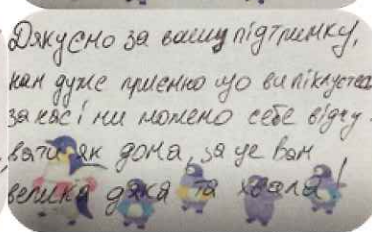 Дякуємо за вашу підтримку,
нам дуже приємно що ви піклуєтеся
за нас і ми можемо себе відчу-
вати як дома, за це вам
велика дяка та хвала!